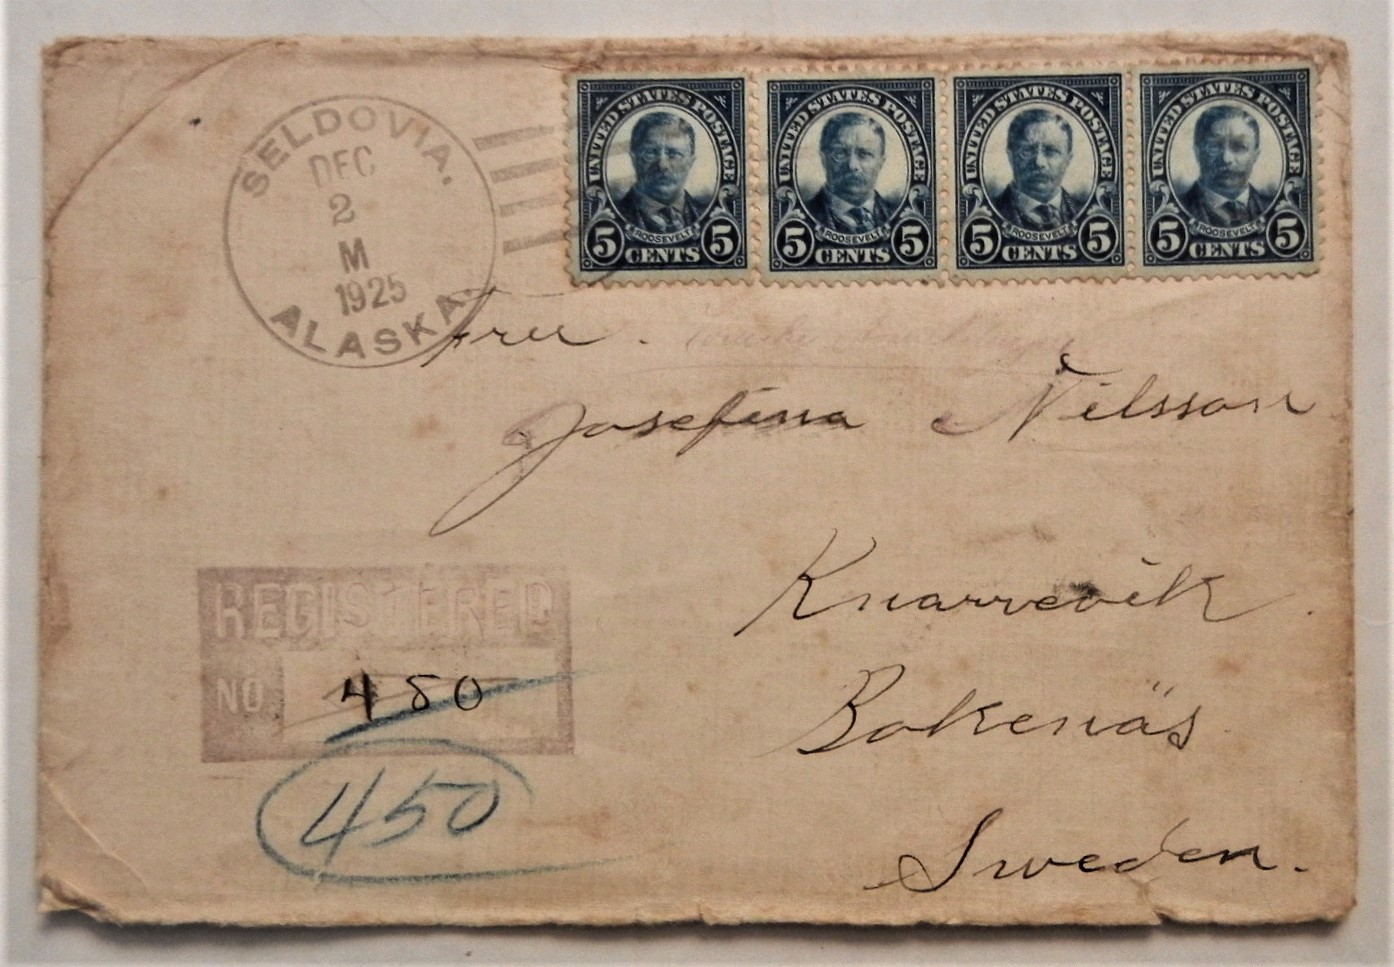 SELDOVIA.
DEC
2
M
1925
ALASKA.
UNITED STATES POSTAGE
ROOSEVELT
5 CENTS 5
UNITED STATES POSTAGE
ROOSEVELT
5 CENTS 5
UNITED STATES POSTAGE
ROOSEVELT
5 CENTS 5
UNITED STATES POSTAGE
ROOSEVELT
5 CENTS 5
Fru.
Josefina Nilsson
Knarrevik.
Bokenäs
Sweden.
REGISTERED
NO 450
450